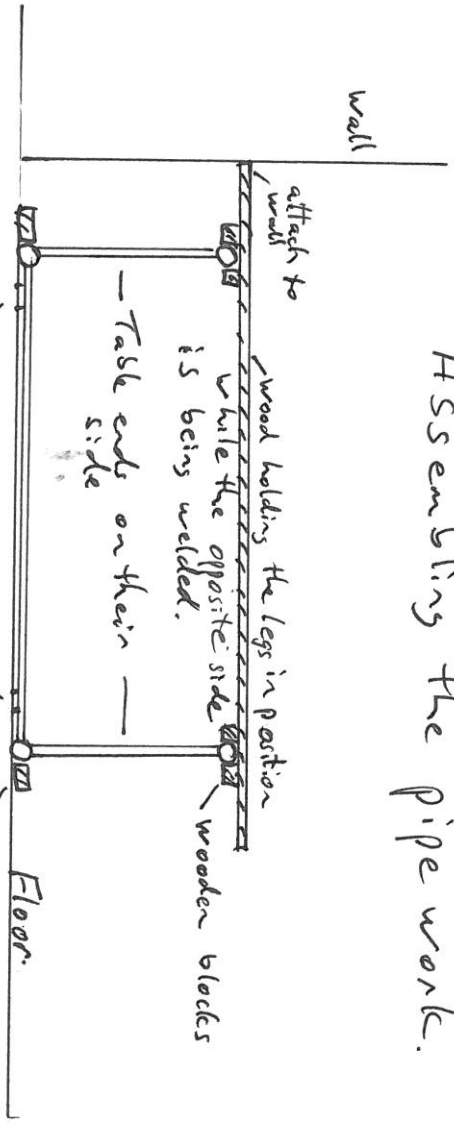 Assembling the pipework.
wall
attach to
wall
wood holding the legs in position
while the opposite side
is being welded.
— Table ends on their —
side
wooden blocks
Floor.